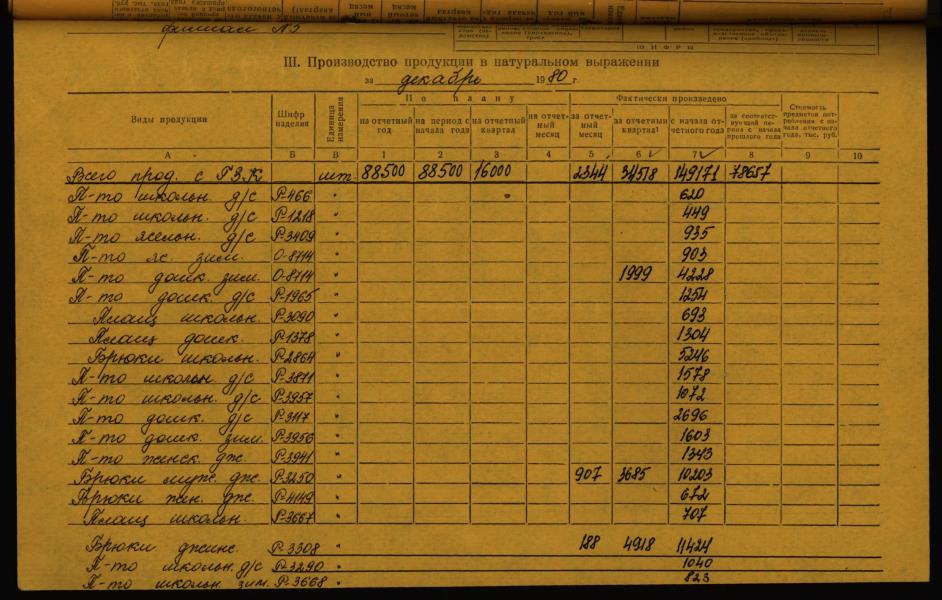 филиал №3
ШИФРЫ
III. Производство продукции в натуральном выражении
за декабрь 1980 г.
Виды продукции Шифр изделия Единица измерения По плану Фактически произведено
на отчетный год на период с начала года на отчетный квартал на отчетный месяц за отчетный месяц за отчетный квартал с начала отчетного года за соответствующий период с начала прошлого года Стоимость предметов потребления с начала отчетного года, тыс. руб.
А Б В 1 2 3 4 5 6 7 8 9 10
Всего прод. с ГЗК шт. 88500 88500 16000 2344 34518 149171 78657
П-то школьн. д/с Р-466 " 620
П-то школьн. д/с Р-1218 " 449
П-то ясельн. д/с Р-3409 " 935
П-то яс. зим. О-8714 " 903
П-то дошк. зим. О-8714 " 1999 4228
П-то дошк. д/с Р-1965 " 1254
Плащ школьн. Р-3090 " 693
Плащ дошк. Р-1378 " 1304
Брюки школьн. Р-2864 " 5246
П-то школьн. д/с Р-3871 " 1578
П-то школьн. д/с Р-3957 " 1072
П-то дошк. д/с Р-3117 " 2696
П-то дошк. зим. Р-3956 " 1603
П-то женск. дж. Р-3941 " 1343
Брюки муж. дж. Р-3250 " 907 3685 10203
Брюки жен. дж. Р-4149 " 672
Плащ школьн. Р-3667 " 707
Брюки джинс. Р-3308 " 188 4918 11424
П-то школьн. д/с Р-3290 " 1040
П-то школьн. зим. Р-3668 " 823